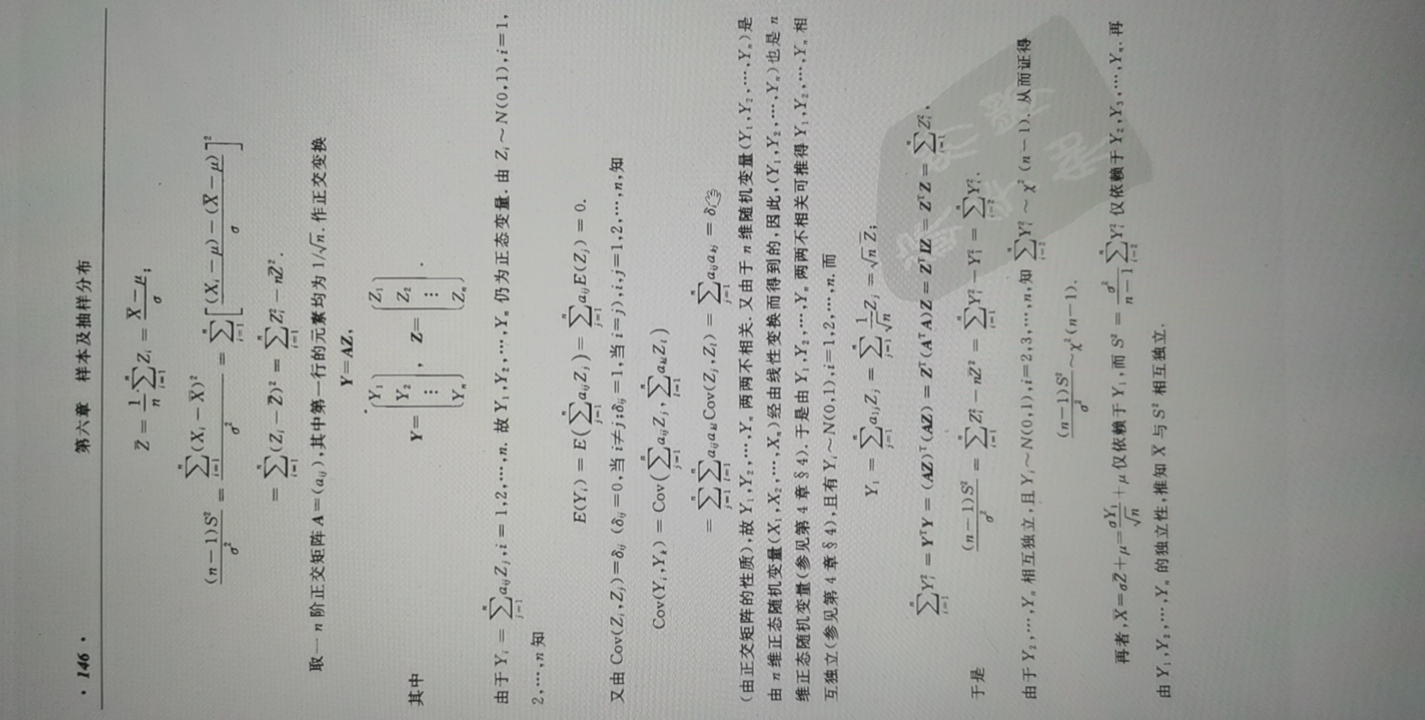 · 146 ·
第六章 样本及抽样分布
Z̄ = 1/n ∑_{i=1}^{n} Z_i = (X̄ − μ)/σ;
(n−1)S²/σ² = ∑_{i=1}^{n}(X_i − X̄)²/σ² = ∑_{i=1}^{n}[((X_i − μ) − (X̄ − μ))/σ]²
= ∑_{i=1}^{n}(Z_i − Z̄)² = ∑_{i=1}^{n}Z_i² − nZ̄².
取一 n 阶正交矩阵 A=(a_{ij}),其中第一行的元素均为 1/√n. 作正交变换
Y=AZ,
其中 Y=(Y_1 Y_2 ⋮ Y_n), Z=(Z_1 Z_2 ⋮ Z_n).
由于 Y_i = ∑_{j=1}^{n}a_{ij}Z_j, i=1,2,…,n. 故 Y_1,Y_2,…,Y_n 仍为正态变量. 由 Z_i~N(0,1),i=1,
2,…,n 知
E(Y_i) = E(∑_{j=1}^{n}a_{ij}Z_j) = ∑_{j=1}^{n}a_{ij}E(Z_j) = 0.
又由 Cov(Z_i,Z_j)=δ_{ij} (δ_{ij}=0,当 i≠j;δ_{ij}=1,当 i=j),i,j=1,2,…,n,知
Cov(Y_i,Y_k) = Cov(∑_{j=1}^{n}a_{ij}Z_j, ∑_{l=1}^{n}a_{kl}Z_l)
= ∑_{j=1}^{n}∑_{l=1}^{n}a_{ij}a_{kl}Cov(Z_j,Z_l) = ∑_{j=1}^{n}a_{ij}a_{kj} = δ
(由正交矩阵的性质),故 Y_1,Y_2,…,Y_n 两两不相关. 又由于 n 维随机变量(Y_1,Y_2,…,Y_n)是
由 n 维正态随机变量(X_1,X_2,…,X_n)经由线性变换而得到的,因此,(Y_1,Y_2,…,Y_n)也是 n
维正态随机变量(参见第 4 章 §4). 于是由 Y_1,Y_2,…,Y_n 两两不相关可推得 Y_1,Y_2,…,Y_n 相
互独立(参见第 4 章 §4),且有 Y_i~N(0,1),i=1,2,…,n. 而
Y_1 = ∑_{j=1}^{n}a_{1j}Z_j = ∑_{j=1}^{n}(1/√n)Z_j = √n Z̄;
∑_{i=1}^{n}Y_i² = YᵀY = (AZ)ᵀ(AZ) = Zᵀ(AᵀA)Z = ZᵀIZ = ZᵀZ = ∑_{i=1}^{n}Z_i²,
于是 (n−1)S²/σ² = ∑_{i=1}^{n}Z_i² − nZ̄² = ∑_{i=1}^{n}Y_i² − Y_1² = ∑_{i=2}^{n}Y_i².
由于 Y_2,…,Y_n 相互独立,且 Y_i~N(0,1),i=2,3,…,n,知 ∑_{i=2}^{n}Y_i² ~ χ²(n−1). 从而证得
(n−1)S²/σ² ~ χ²(n−1).
再者,X̄=σZ̄+μ=σY_1/√n+μ 仅依赖于 Y_1,而 S²=σ²/(n−1) ∑_{i=2}^{n}Y_i² 仅依赖于 Y_2,Y_3,…,Y_n. 再
由 Y_1,Y_2,…,Y_n 的独立性,推知 X̄ 与 S² 相互独立.